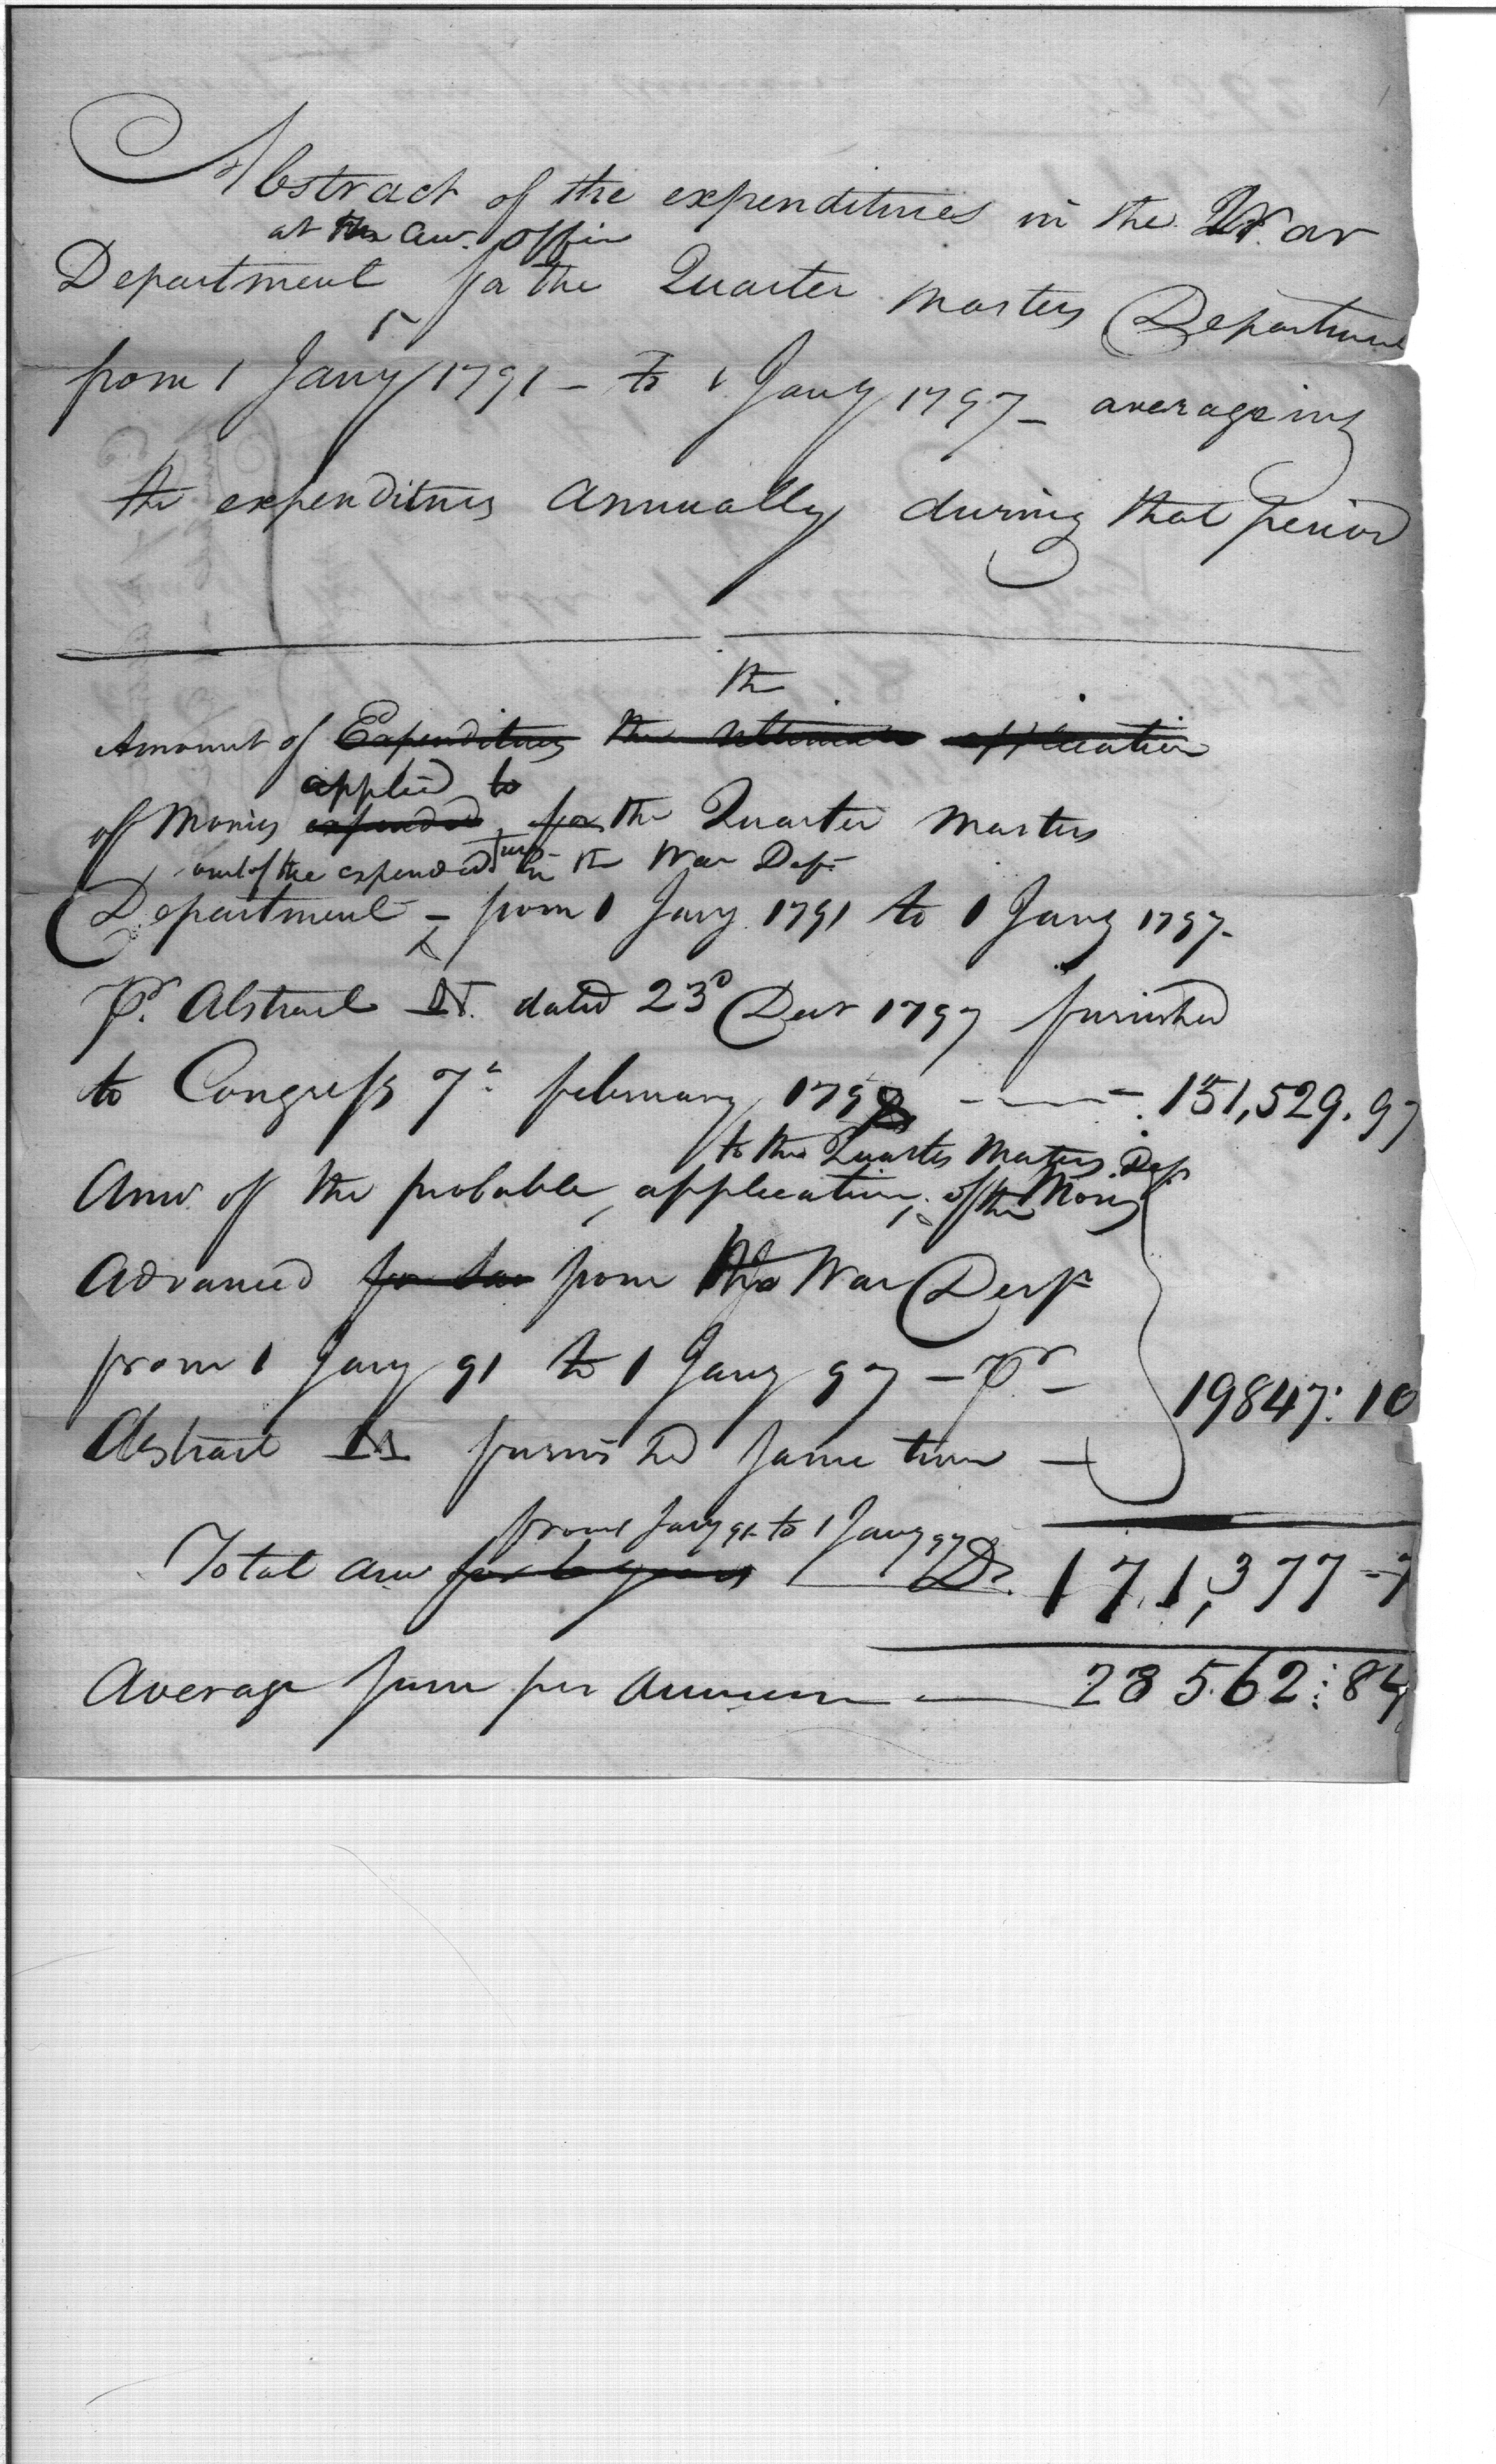 Abstract of the expenditures in the War
at the acc. office
Department for the Quarter Masters Department
from 1 Jany 1791 - to 1 Jany 1797 - averageing
the expenditures annually during that period
the
Amount of Expenditures the ultimate application
applied to
of Monies expended for the Quarter Masters
out of the expenditures in the War Dept.
Department - from 1 Jany 1791 to 1 Jany 1797.
Pr. Abstract N. dated 23d Decr 1797 furnished
to Congress 7th february 1798 - 151,529.97
to the Quarter Masters Dept
Amt. of the probable application of the Monies
Advanced for the from the War Dept
from 1 Jany 91 to 1 Jany 97 - Pr -
19847:10
Abstract furnished same time
from 1 Jany 91 to 1 Jany 97
Total amt for 6 years Ds. 171,377-7
Average sum per annum - 28562:84